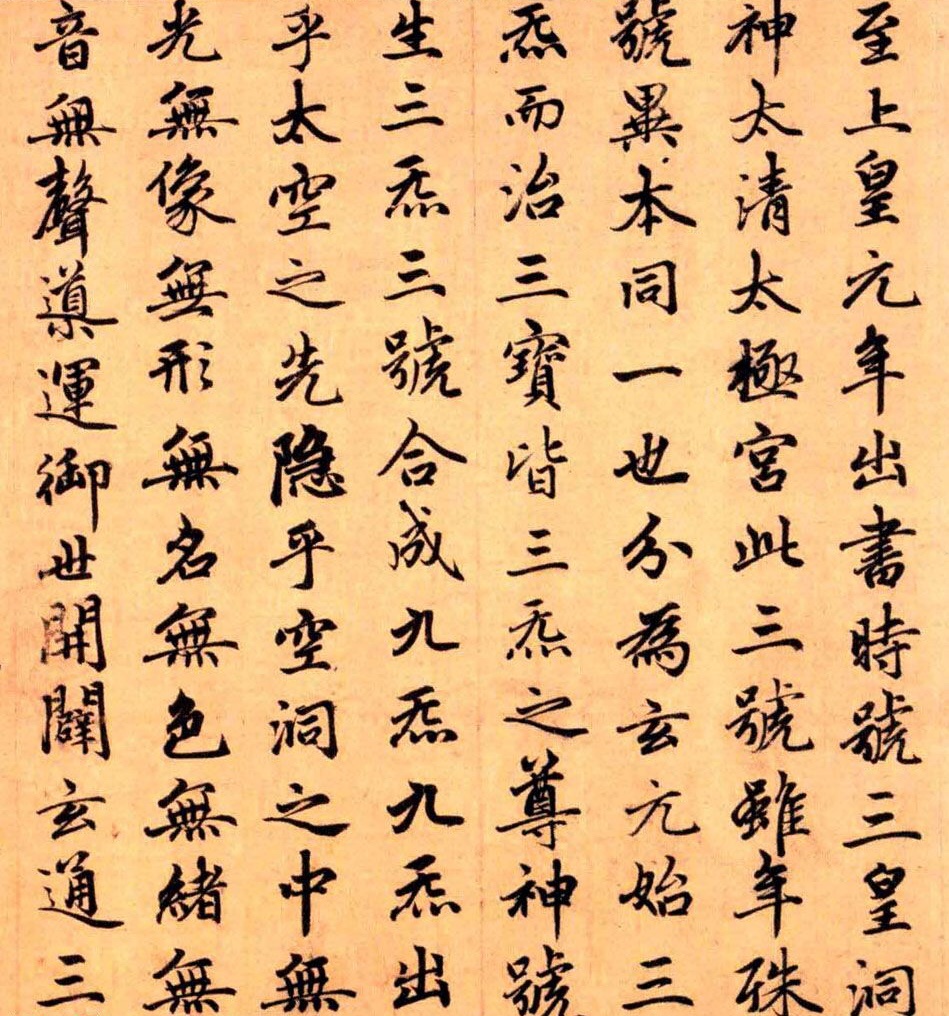 至上皇元年出書時號三皇洞
神太清太極宮此三號雖年殊
號異本同一也分為玄元始三
炁而治三寶皆三炁之尊神號
生三炁三號合成九炁九炁出
乎太空之先隐乎空洞之中無
光無像無形無名無色無緒無
音無聲導運御世開闢玄通三